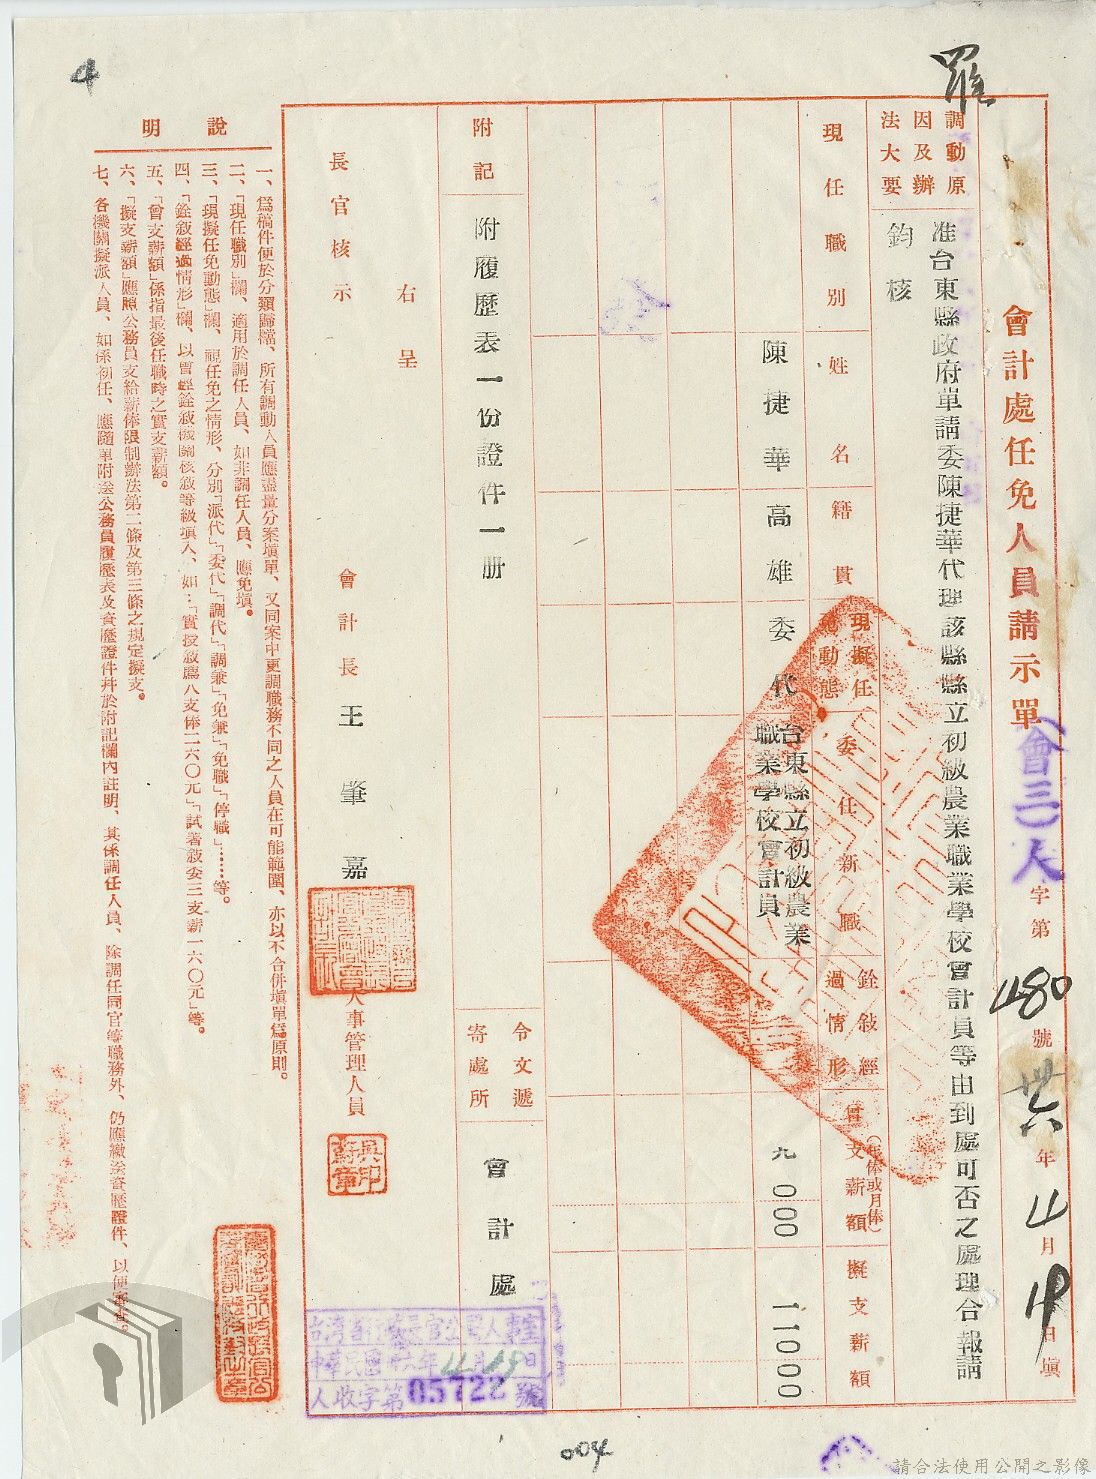 羅
會計處任免人員請示單
(會三)人字第480號 卅六年4月19日填
調動原因及辦法大要
准台東縣政府單請委陳捷華代理該縣縣立初級農業職業學校會計員等由到處可否之處理合報請
鈞核
現任職別
姓名
籍貫
現擬任免動態
委任新職
銓敘經過情形
曾支薪額(年俸或月俸)
擬支薪額
陳捷華
高雄
委代
台東縣立初級農業職業學校會計員
九〇〇〇
一一〇〇〇
附記
附履歷表一份證件一册
令文遞寄處所
會計處
右呈
長官核示
會計長王肇嘉
人事管理人員
說明
一、爲稿件便於分類歸檔、所有調動人員應盡量分案填單、又同案中更調職務不同之人員在可能範圍、亦以不合併填單爲原則。
二、「現任職別」欄、適用於調任人員、如非調任人員、應免填。
三、「現擬任免動態」欄、視任免之情形、分別「派代」「委代」「調代」「調兼」「免兼」「免職」「停職」……等。
四、「銓敍經過情形」欄、以曾經銓敍機關核敍等級填入、如：「實授敍薦八支俸二六〇元」「試署敍委三支薪一六〇元」等。
五、「曾支薪額」係指最後任職時之實支薪額。
六、「擬支薪額」應照公務員支給薪俸限制辦法第二條及第三條之規定擬支。
七、各機關擬派人員、如係初任、應隨單附送公務員履歷表及資歷證件幷於附記欄內註明、其係調任人員、除調任同官等職務外、仍應繳送資歷證件、以便審查。
台灣省行政長官公署人事室
中華民國卅六年4月19日
人收字第05722號
4
004
請合法使用公開之影像